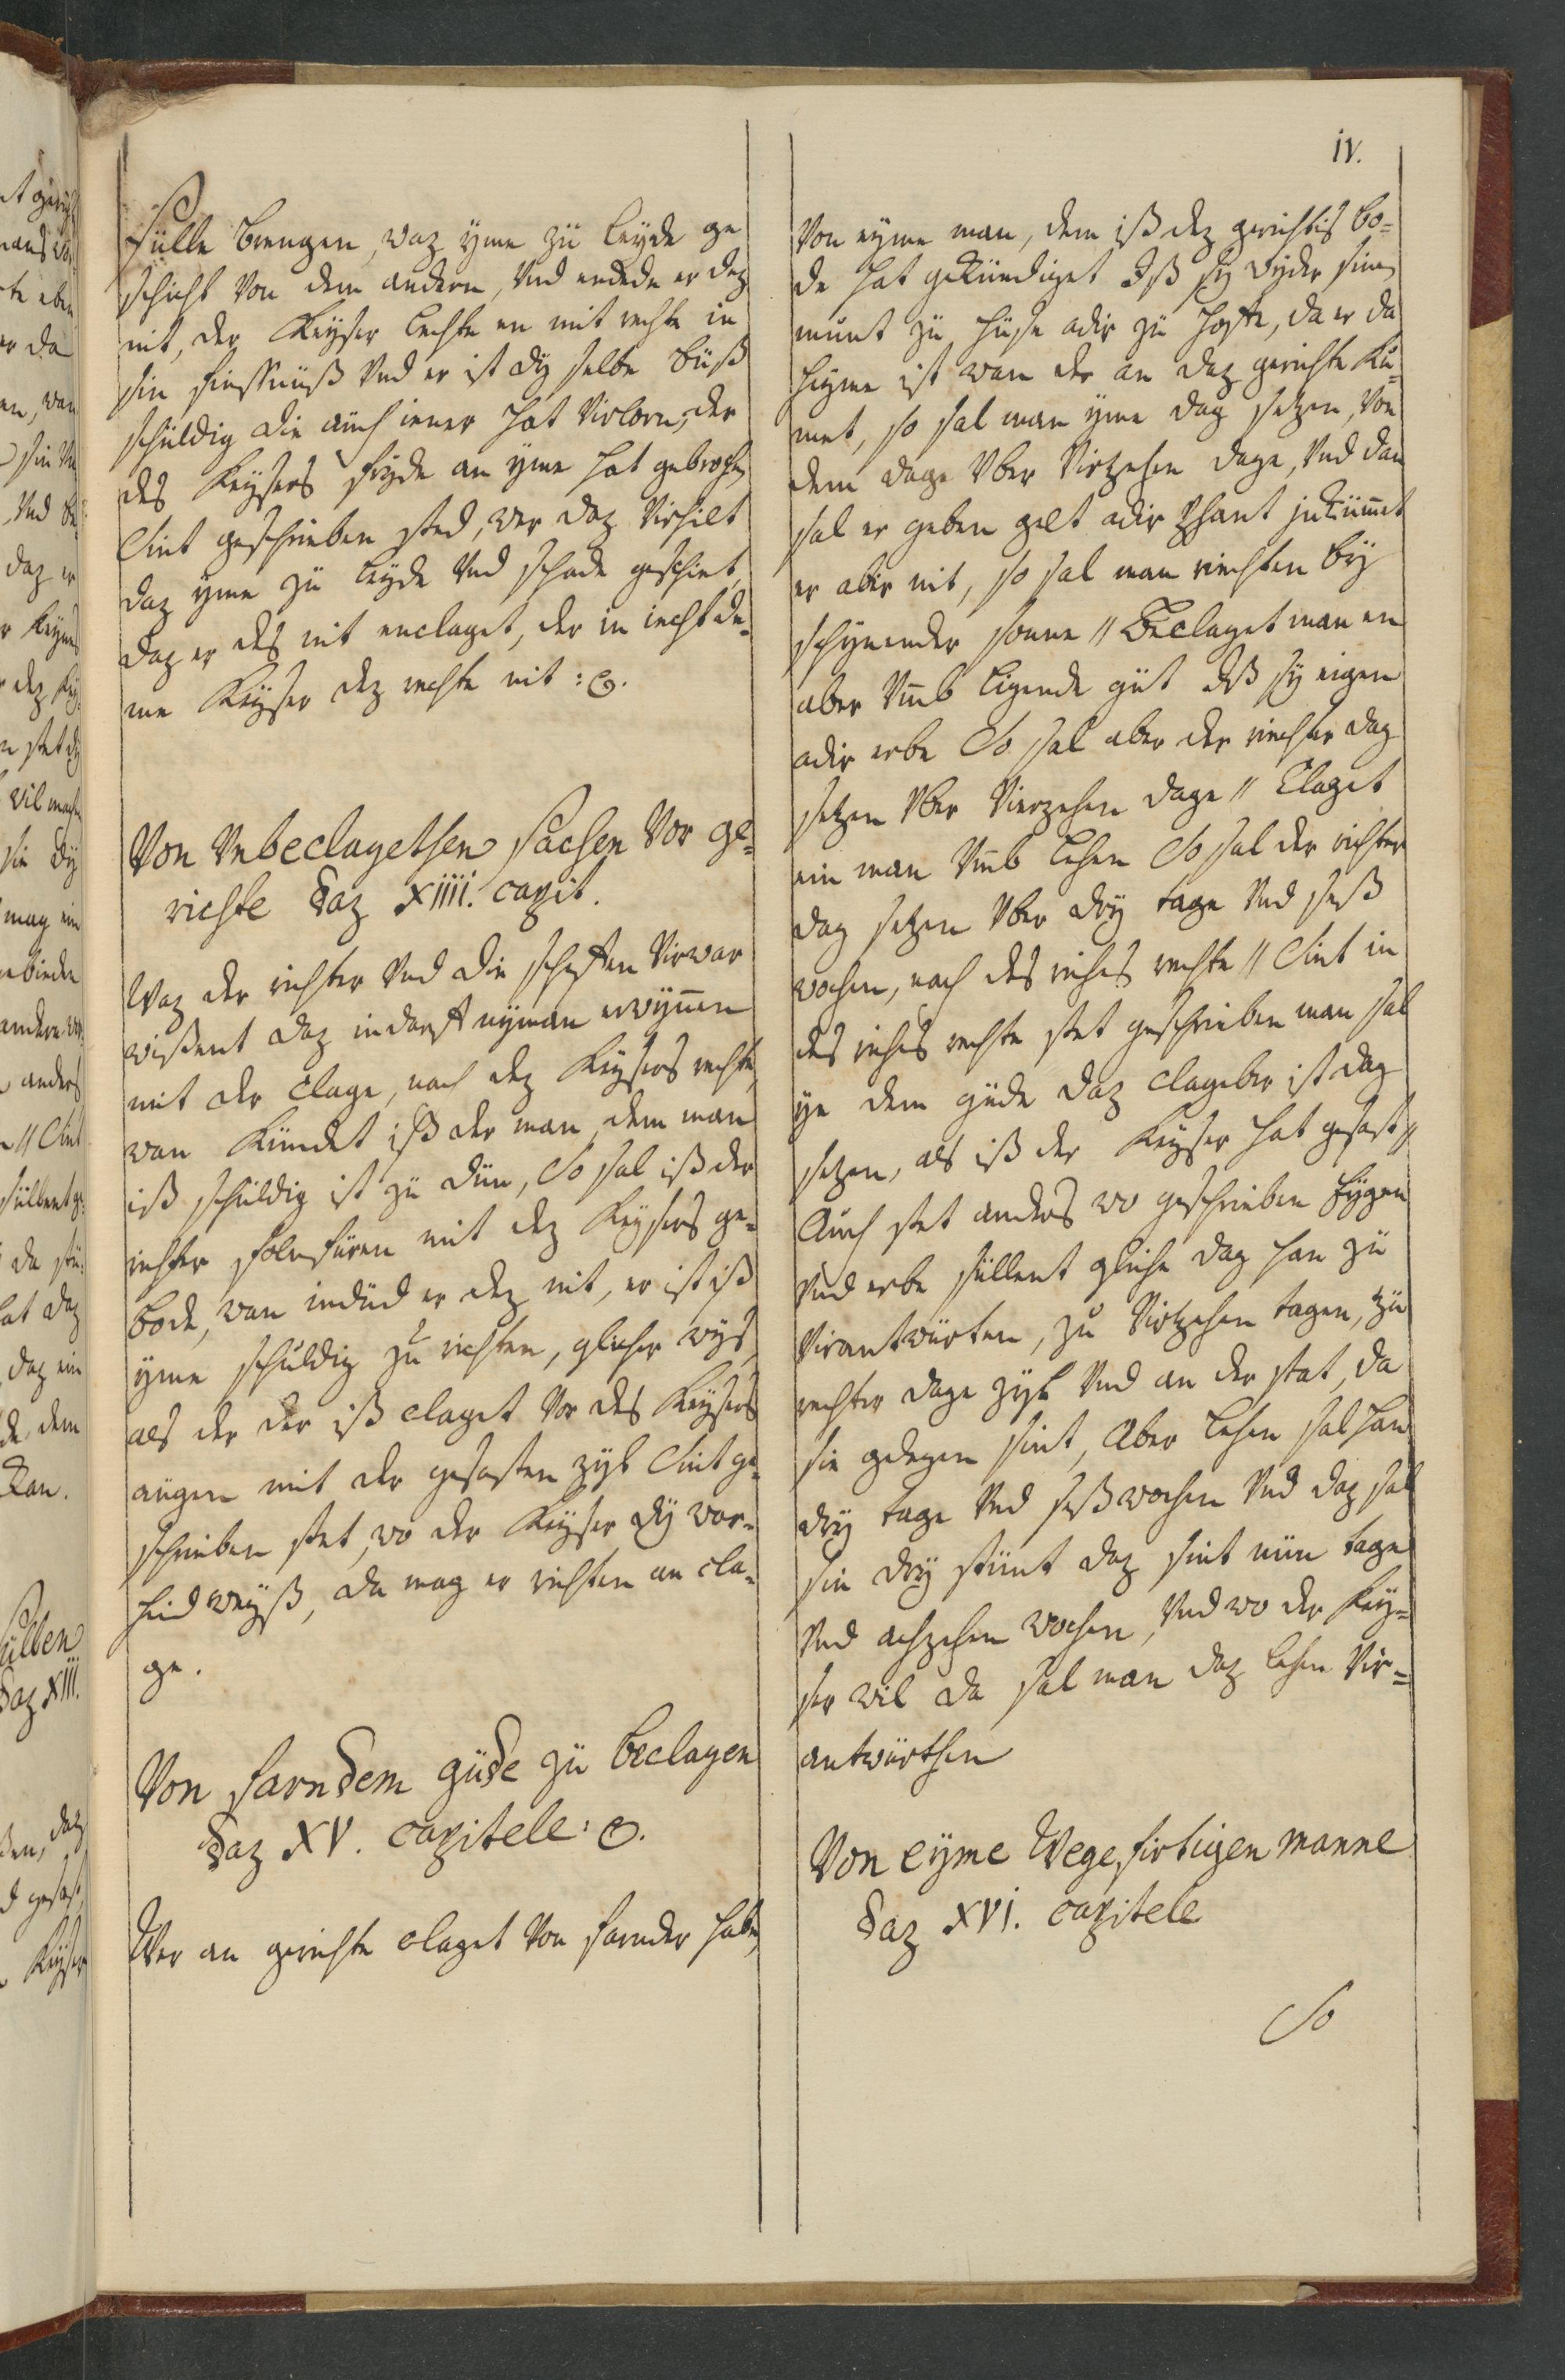 iv.
sulle brengen, waz yme zü leyde ge
schicht von dem andern, vnd endede er dez
nit, der Keyser lechte en mit rechte in
sin finsternuß vnd er ist dy selbe büß
schüldig die auch iener hat virlorn, der
des Keysers fryde an yme hat gebrochen
Sint geschrieben sted, wer daz virhilt
daz yme zü leyde vnd schade geschiet,
daz er des nit enclaget, der in iecht de-
me Keyser dez rechte nit :
Von Vnbeclagetsen sachen vor ge-
richte daz xiiii. capit.
Waz der richter vnd die scheffen virwar
wißent daz indarff nyman erwynnen
mit der clage, nach dez Keysers rechte,
wan kündet iß der man, dem man
iß schüldig ist zü dün, So sal iß der
richter folnfüren mit dez Keysers ge-
bode, wan indüd er dez nit, er ist iß
yme schuldig zu richten, glicher wyß,
als der der iß claget vor des Keysers
augen mit der gesasten zyl Sint ge-
schrieben stet, wo der Keyser dy war-
heid weyß, da mag er richten an cla-
ge.
Von farndem güde zü beclagen
daz XV. capitele:
Wer an gerichte claget von farnder habe,
Von eyme man, dem iß dez gerichtis bo-
de hat gekündiget Iß sy wyder sinen
munt zü huse adir zü hoffe, da er da
heyme ist wan der an daz gerichte ku-
met, so sal man yme dag setzen, von
dem dage vber virtzehen dage, vnd dan
sal er geben gelt adir phant inkümet
er abir nit, so sal man riechten by
schynender sonne // Beclaget man en
aber vmb ligende güt Iß sy eigen
adir erbe So sal aber der riechter dag
setzen vber vierzehen dage // Claget
ein man vmb lehen So sal der richter
dag setzen vber dry tage vnd seß
wochen, nach des riches rechte // Sint in
des riches rechte stet geschrieben man sal
ye dem güde daz clageber ist dag
setzen, als iß der Keyser hat gesast //
Auch stet anders wo geschrieben Eygen
vnd erbe süllent gliche dag han zü
virantwürten, zu virtzehen tagen, zü
rechter dage zyl vnd an der stat, da
sie gelegen sint, Aber lehen sal han
dry tage vnd seß wochen vnd daz sal
sin dry stünt daz sint nün tage
vnd achzehen wochen, vnd wo der Key-
ser wil da sal man daz lehen vir-
antwürthen
Von eyme Wegefirtigen manne
daz XVI. capitele
So